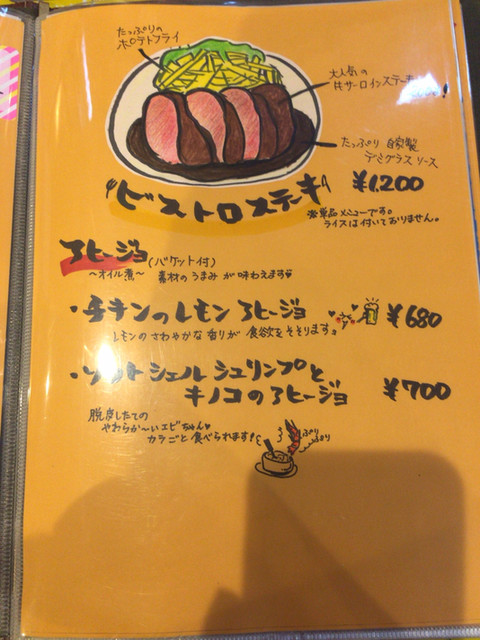 たっぷりの
ポテトフライ
大人気の
牛サーロインステーキ
たっぷり 自家製
デミグラスソース
ビストロステーキ ¥1,200
※単品メニューです。
ライスは付いておりません。
アヒージョ(バケット付)
〜オイル煮〜 素材のうまみが味わえます
・チキンのレモンアヒージョ ¥680
レモンのさわやかな香りが食欲をそそります。
・ソフトシェルシュリンプと
キノコのアヒージョ ¥700
脱皮したての
やわらか〜いエビちゃん♥
カラごと食べられます!
ぷり
ぷり